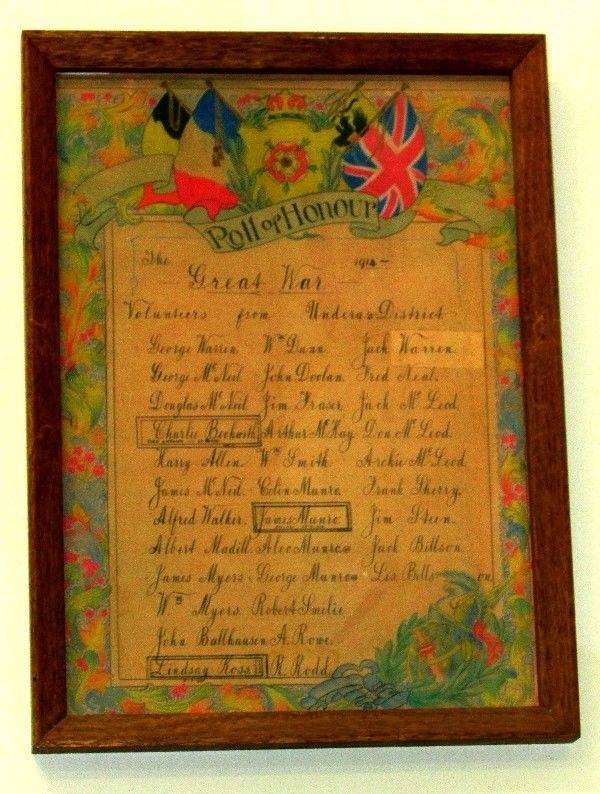 Roll of Honour
The 1914 -
Great War
Volunteers from Undera District
George Warren. Wm Dunn. Jack Warren.
George McNeil. John Doolan. Fred Neal.
Douglas McNeil Jim Fraser. Jack McLeod.
Charlie Beckwith Arthur McKay Don McLeod.
Harry Allen. Wm Smith. Archie McLeod.
James McNeil. Colin Munro. Frank Sherry.
Alfred Walker. James Munro. Jim Steen.
Albert Madill. Alec Munro Jack Billson.
James Myers George Munro Les Billson
Wm Myers. Robert Smilie
John Ballhausen A. Rowe.
Lindsay Ross R. Rodd.